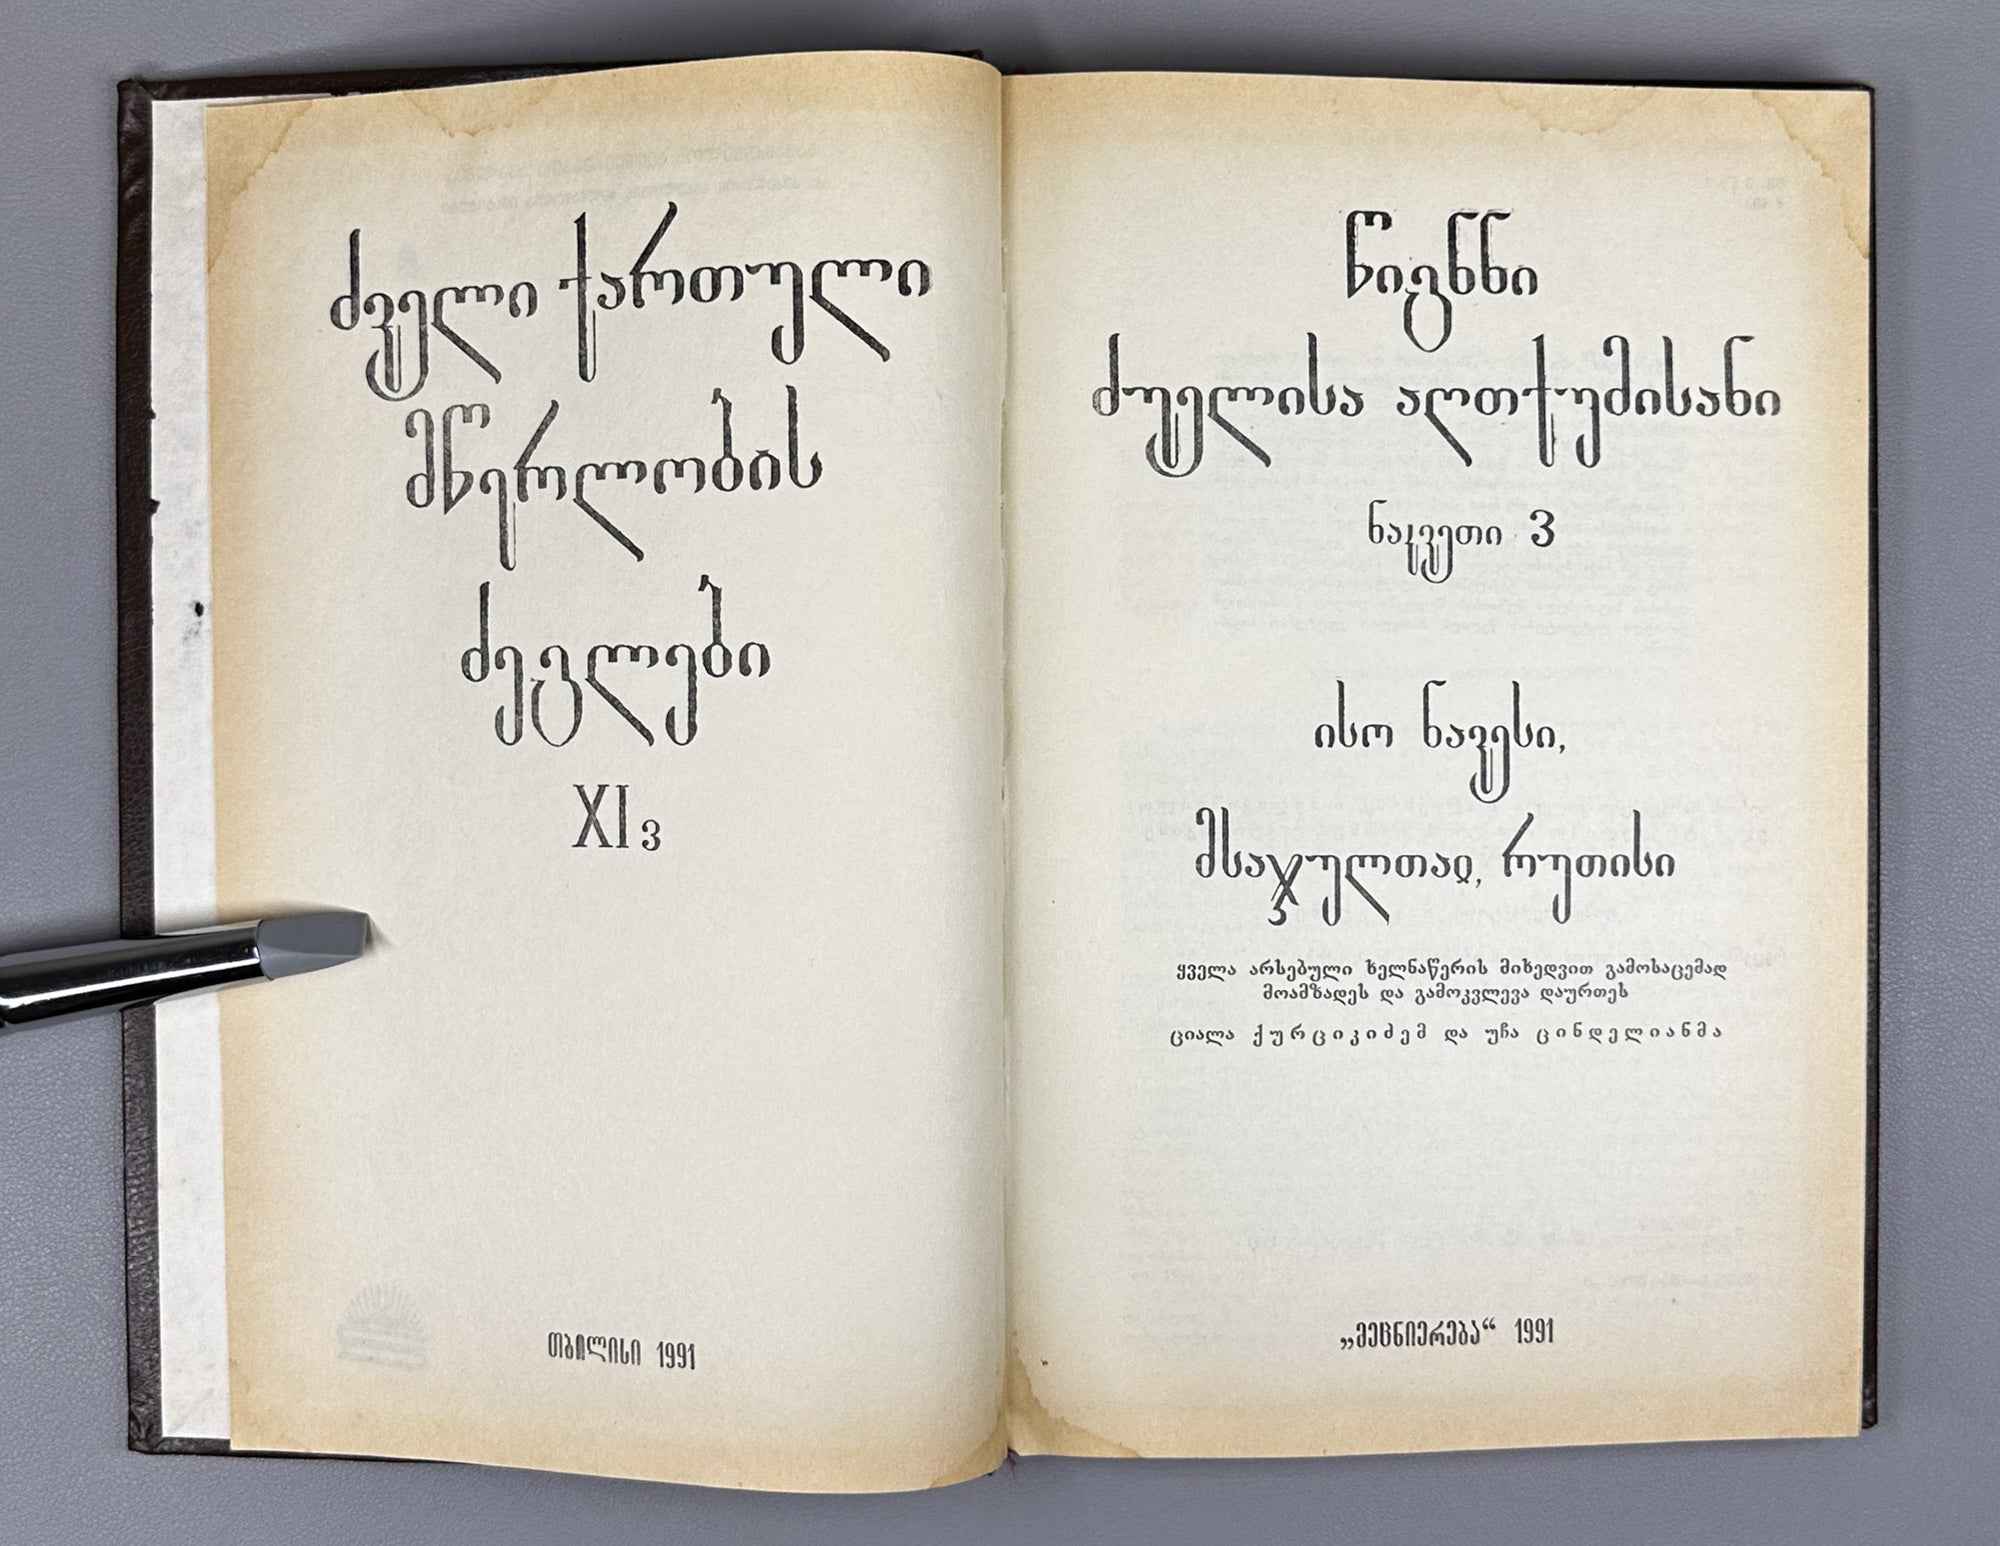 ძველი ქართული
მწერლობის
ძეგლები
XI 3
თბილისი 1991
წიგნნი
ძუელისა აღთქუმისანი
ნაკვეთი 3
ისო ნავესი,
მსაჯულთაჲ, რუთისი
ყველა არსებული ხელნაწერის მიხედვით გამოსაცემად
მოამზადეს და გამოკვლევა დაურთეს
ციალა ქურციკიძემ და უჩა ცინდელიანმა
„მეცნიერება“ 1991